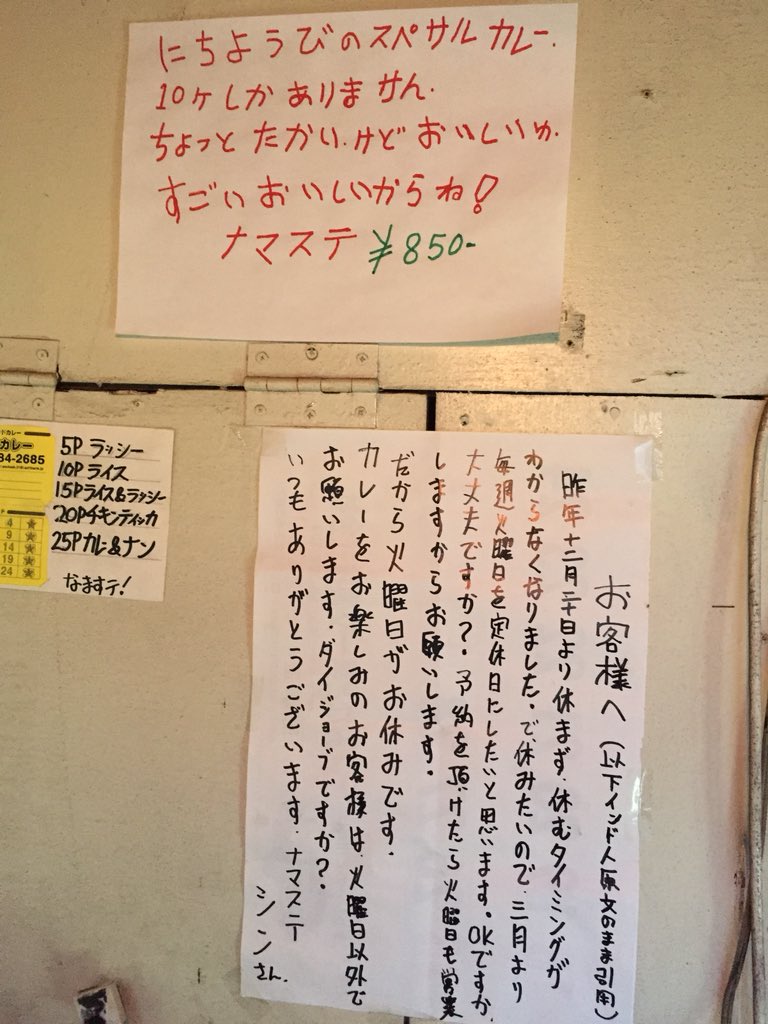 にちようびのスペサルカレー.
10ケしかありません.
ちょっとたかい.けどおいしいゅ.
すごいおいしいからね!
ナマステ ¥850-
ドカレー
カレー
84-2685
4 ★
9 ★
14 ★
19 ★
24 ★
5P ラッシー
10P ライス
15Pライス&ラッシー
20Pチキンティッカ
25Pカレー&ナン
なますテ!
お客様へ(以下インド人原文のまま引用)
昨年十二月二十日より休まず、休むタイミングが
わからなくなりました。で、休みたいので、三月より
毎週火曜日を定休日にしたいと思います。OKですか.
大丈夫ですか?.予約を頂けたら火曜日も営業
しますからお願いします.
だから火曜日がお休みです.
カレーをお楽しみのお客様は、火曜日以外で
お願いします.ダイジョーブですか?.
いつもありがとうございます.ナマステ
シンさん.